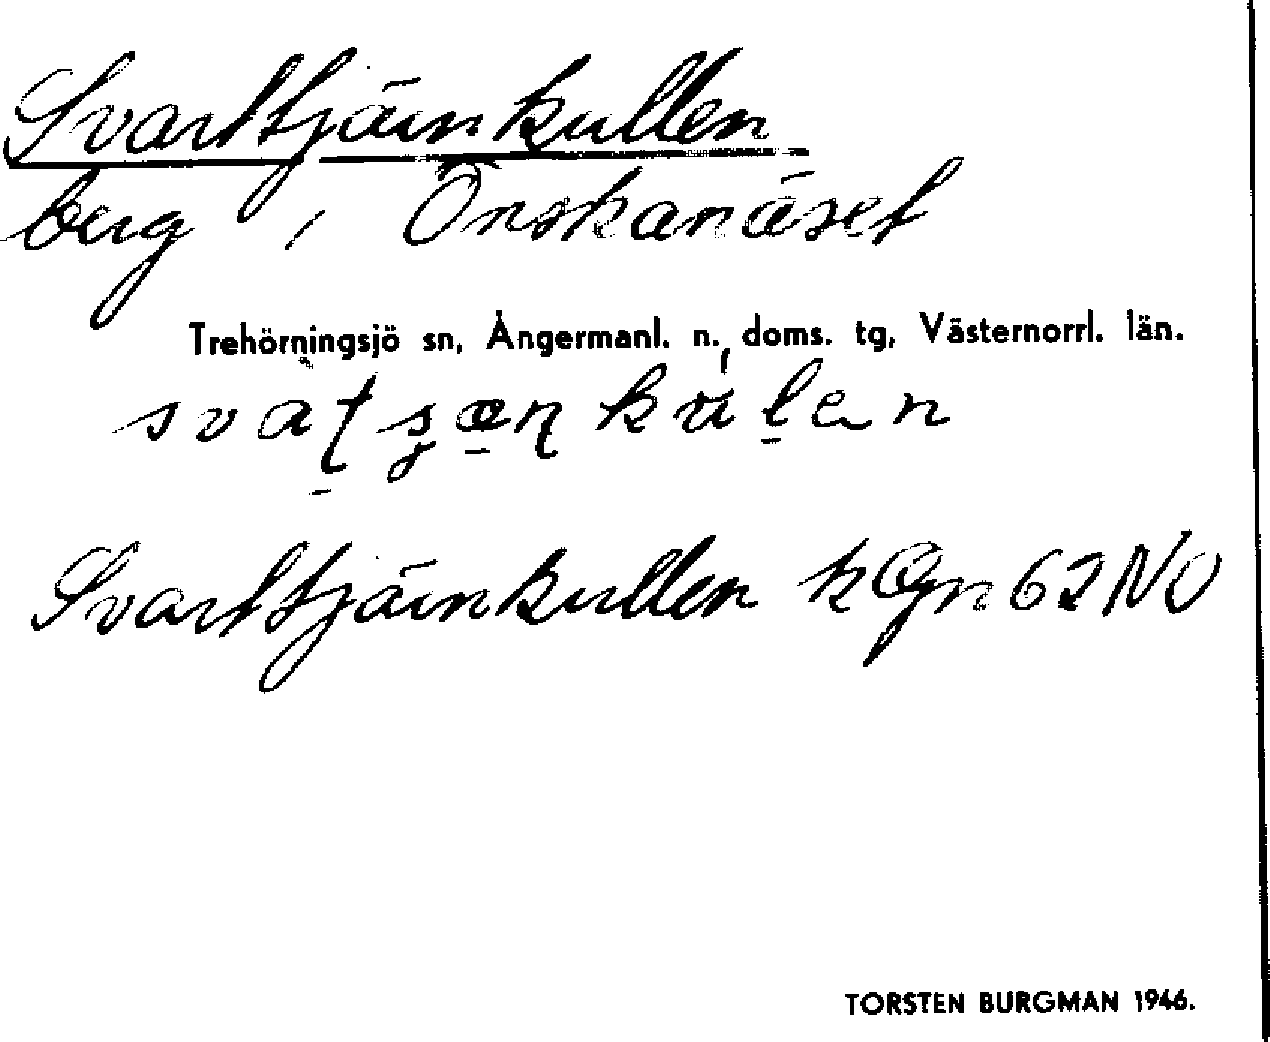 Svarttjärnkullen
berg, Önskanäset
Trehörningsjö sn, Ångermanl. n. doms. tg, Västernorrl. län.
Svarttjärnkullen kGn 62 NV
TORSTEN BURGMAN 1946.